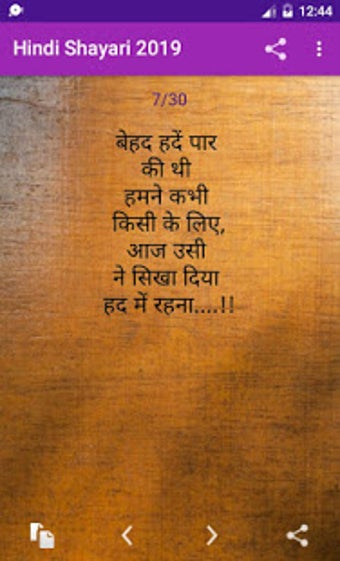 12:44
Hindi Shayari 2019
7/30
बेहद हदें पार
की थी
हमने कभी
किसी के लिए,
आज उसी
ने सिखा दिया
हद में रहना....!!